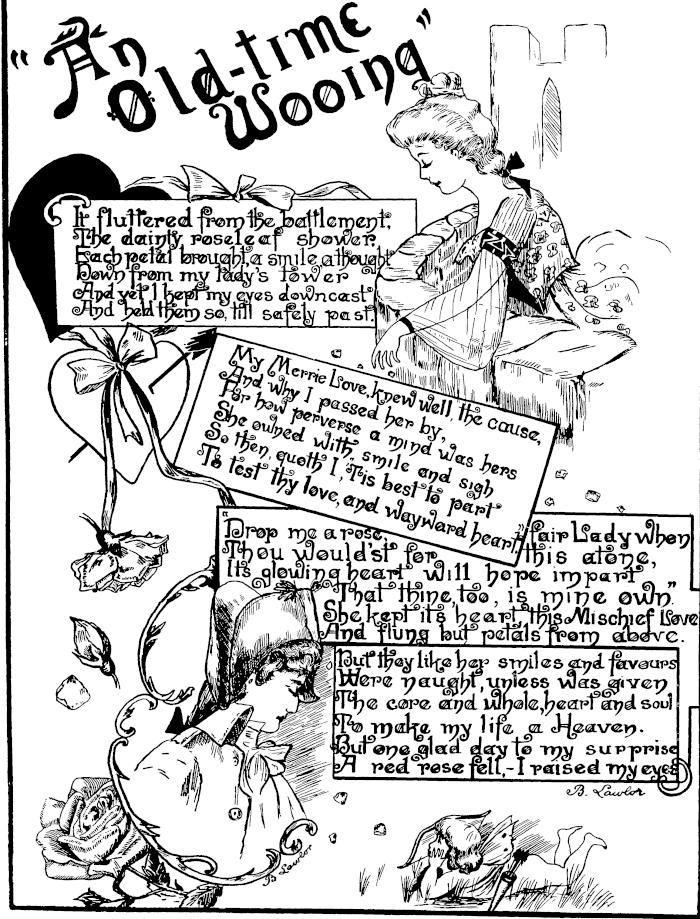 "An
Old-time
Wooing"
It fluttered from the battlement,
The dainty, roseleaf shower,
Each petal brought, a smile, a thought
Down from my lady's tower
And yet I kept my eyes downcast
And held them so, till safely past.
My Merrie Love, knew well, the cause,
And why I passed her by,
For how perverse a mind was hers
She owned with, smile and sigh
So then, quoth I, "Tis best to part
To test thy love, and wayward heart,"
"Drop me a rose, fair Lady when
Thou would'st for this atone,
Its glowing heart will hope impart
That thine, too, is mine own."
She kept its heart, this Mischief Love
And flung but petals from above.
But they like her smiles and favours
Were naught, unless was given
The core and whole, heart and soul
To make my life a Heaven.
But one glad day to my surprise
A red rose fell,-I raised my eyes
B. Lawlor
B Lawlor